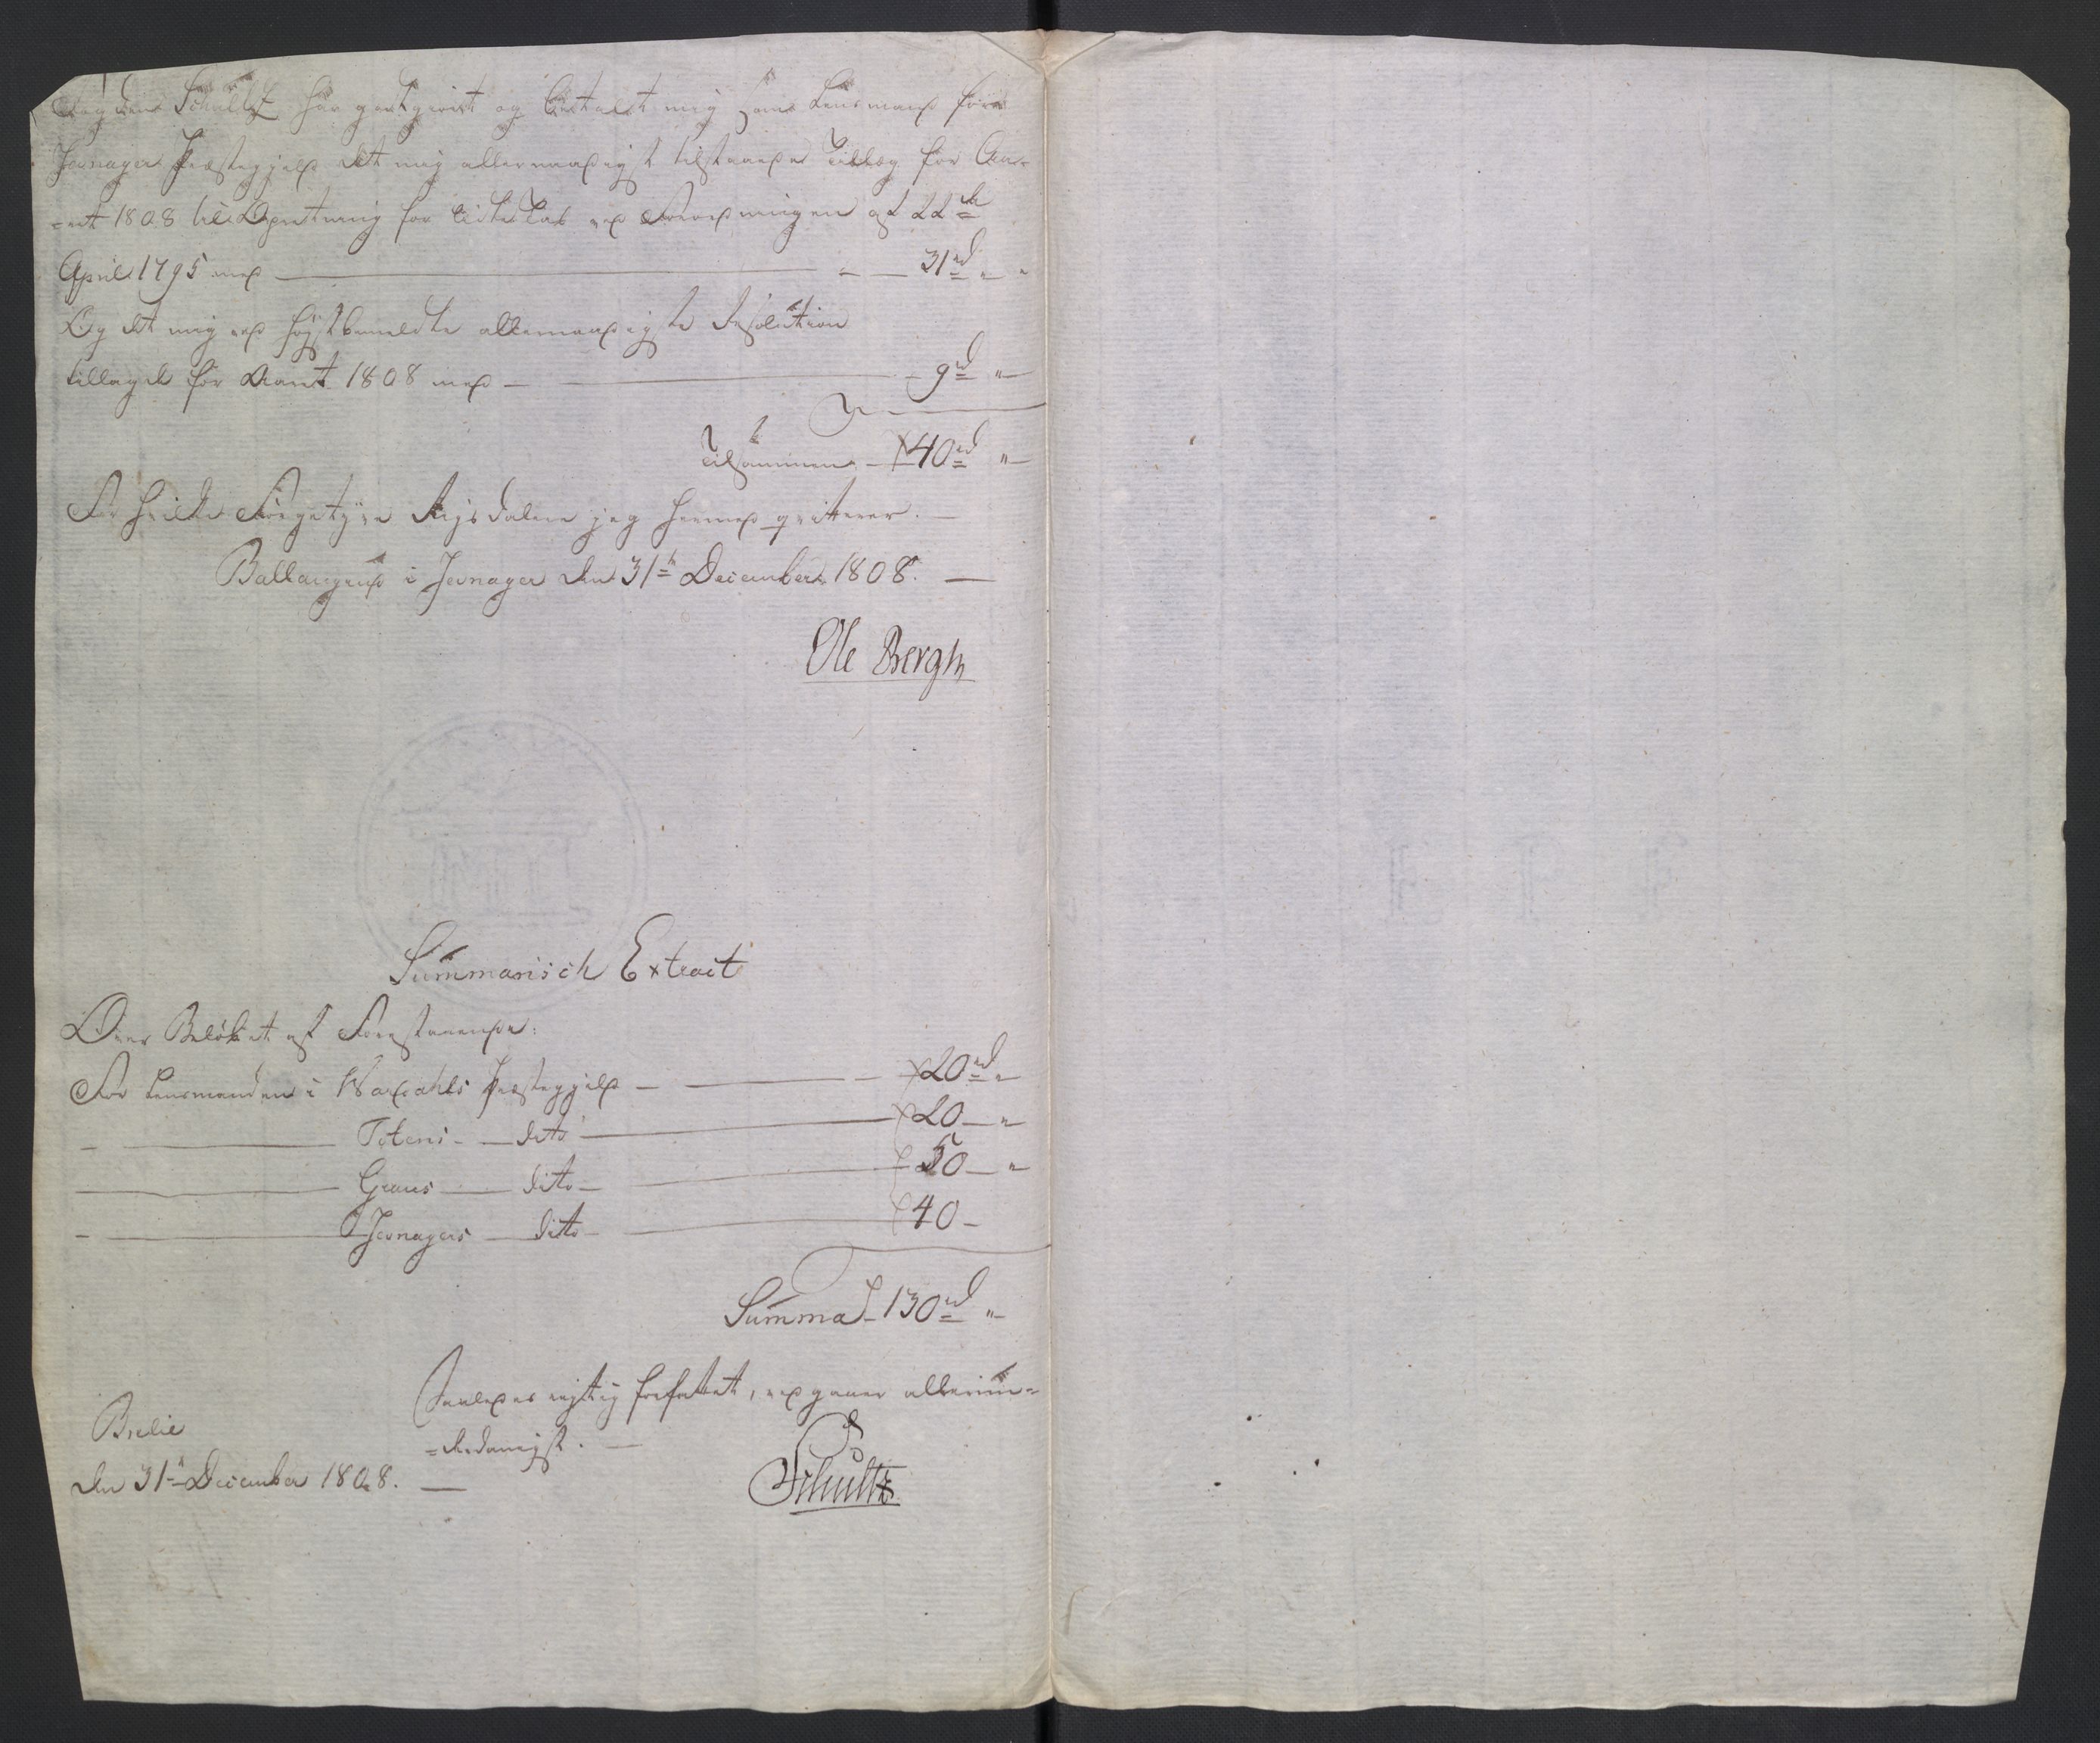 Fogden Schultz har godtgiort og betalt mig som Lensmand for
Jevnager Præstegjeld det mig allernaadigst tilstaaede Tillæg for Aa-
=ret 1808 til Opretning for ved Forordningen af 22de
April 1795 med — 31 rd „ „
Og det mig ved høystbemeldte allernaadigste Resolution
tillagde for Aaret 1808 med — 9 rd „
Tilsammen — 40 rd „
For hvilke Fyrgetyve Rigsdaler jeg hermed qvitterer. —
Ballangrud i Jevnager den 31te December 1808. —
Ole Bergh
Summarisch Extract
Over Beløbet af Forestaaende:
For Lensmanden i Wardahls Præstegjeld — 20 rd „
— Totens — dito — 20 — „
— Grans — dito — 50 — „
— Jevnagers — dito — 40 —
Summa — 130 rd „
Saaledes rigtig forfattet, vedgaaer allerun=
=derdanigst. —
Brelie
den 31te December 1808. —
Schultz